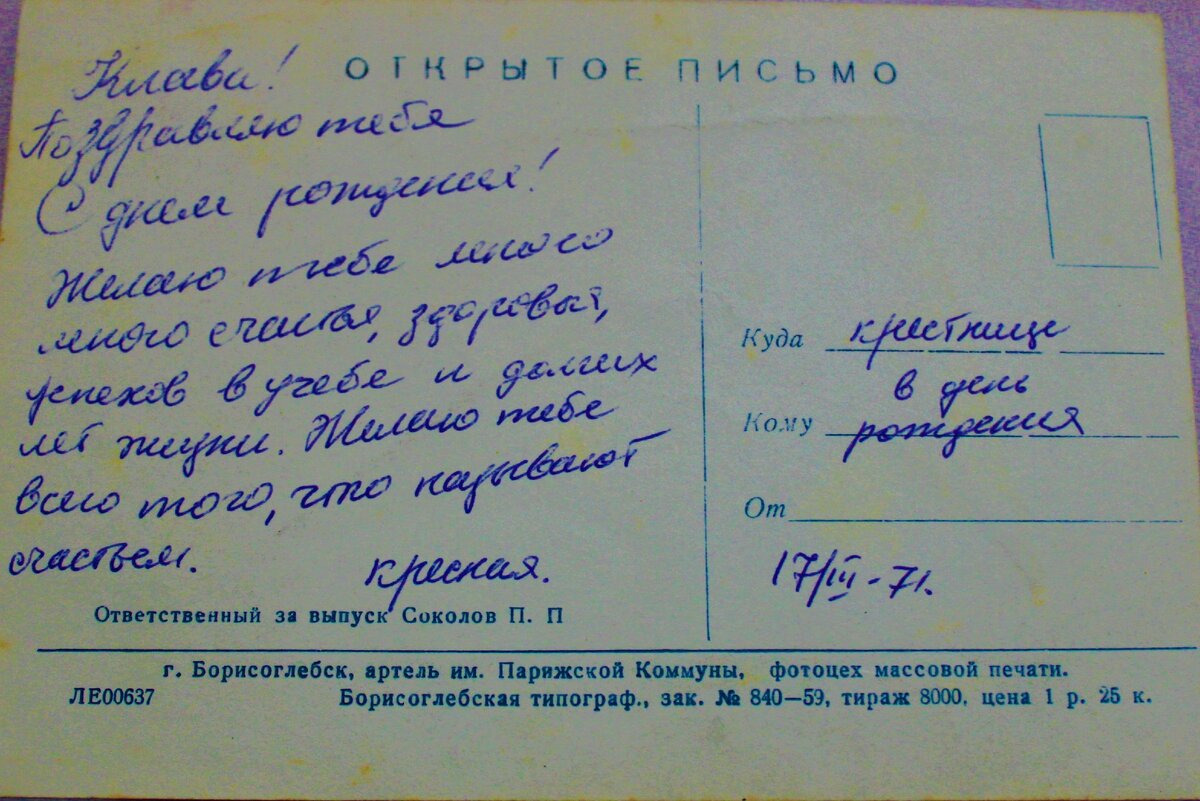 ОТКРЫТОЕ ПИСЬМО
Клава!
Поздравляю тебя
С днем рождения!
Желаю тебе много
много счастья, здоровья,
успехов в учебе и долгих
лет жизни. Желаю тебе
всего того, что называют
счастьем.
кресная.
Куда крестнице
в день
Кому рождения
От
17/III-71.
Ответственный за выпуск Соколов П. П
г. Борисоглебск, артель им. Парижской Коммуны, фотоцех массовой печати.
ЛЕ00637 Борисоглебская типограф., зак. № 840—59, тираж 8000, цена 1 р. 25 к.